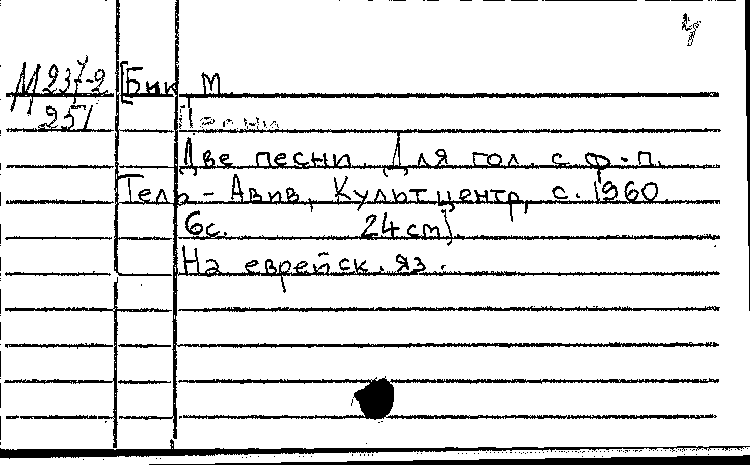 М 237-2 [Бик М.
251 Песни
Две песни. Для гол. с ф.-п.
Тель-Авив, Культцентр, с. 1960
6с. 24cm].
На еврейск. яз.